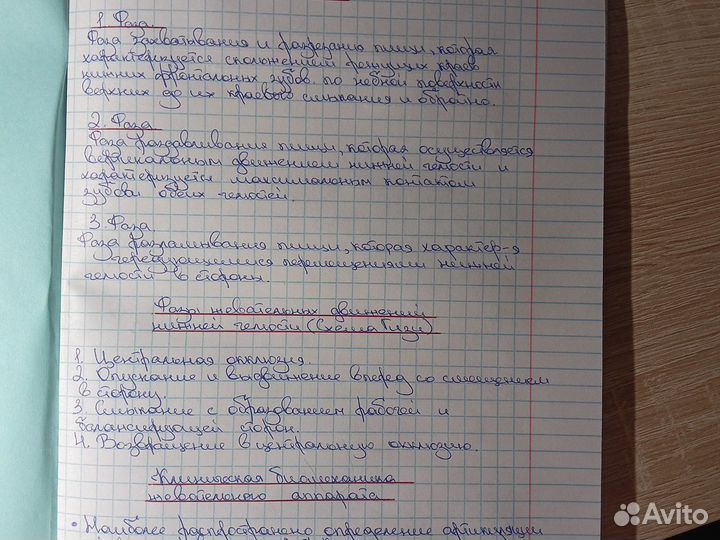 1. Фаза
Фаза захватывания и разрезания пищи, которая
характеризуется скольжением режущих краев
нижних фронтальных зубов по небной поверхности
верхних до их краевого смыкания и обратно.
2. Фаза
Фаза раздавливания пищи, которая осуществляется
вертикальным движением нижней челюсти и
характеризуется максимальным контактом
зубов обеих челюстей.
3. Фаза
Фаза размалывания пищи, которая характер-я
чередующимися перемещениями нижней
челюсти в стороны.
Фазы жевательных движений
нижней челюсти (Схема Гизи)
1. Центральная окклюзия.
2. Опускание и выдвижение вперед со смещением
в сторону.
3. Смыкание с образованием рабочей и
балансирующей сторон.
4. Возвращение в центральную окклюзию.
Клиническая биомеханика
жевательного аппарата
• Наиболее распространено определение артикуляции
Avito